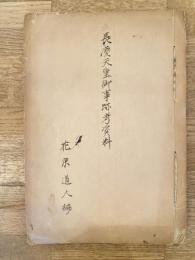 長慶天皇御事跡考資料
花泉道人柳